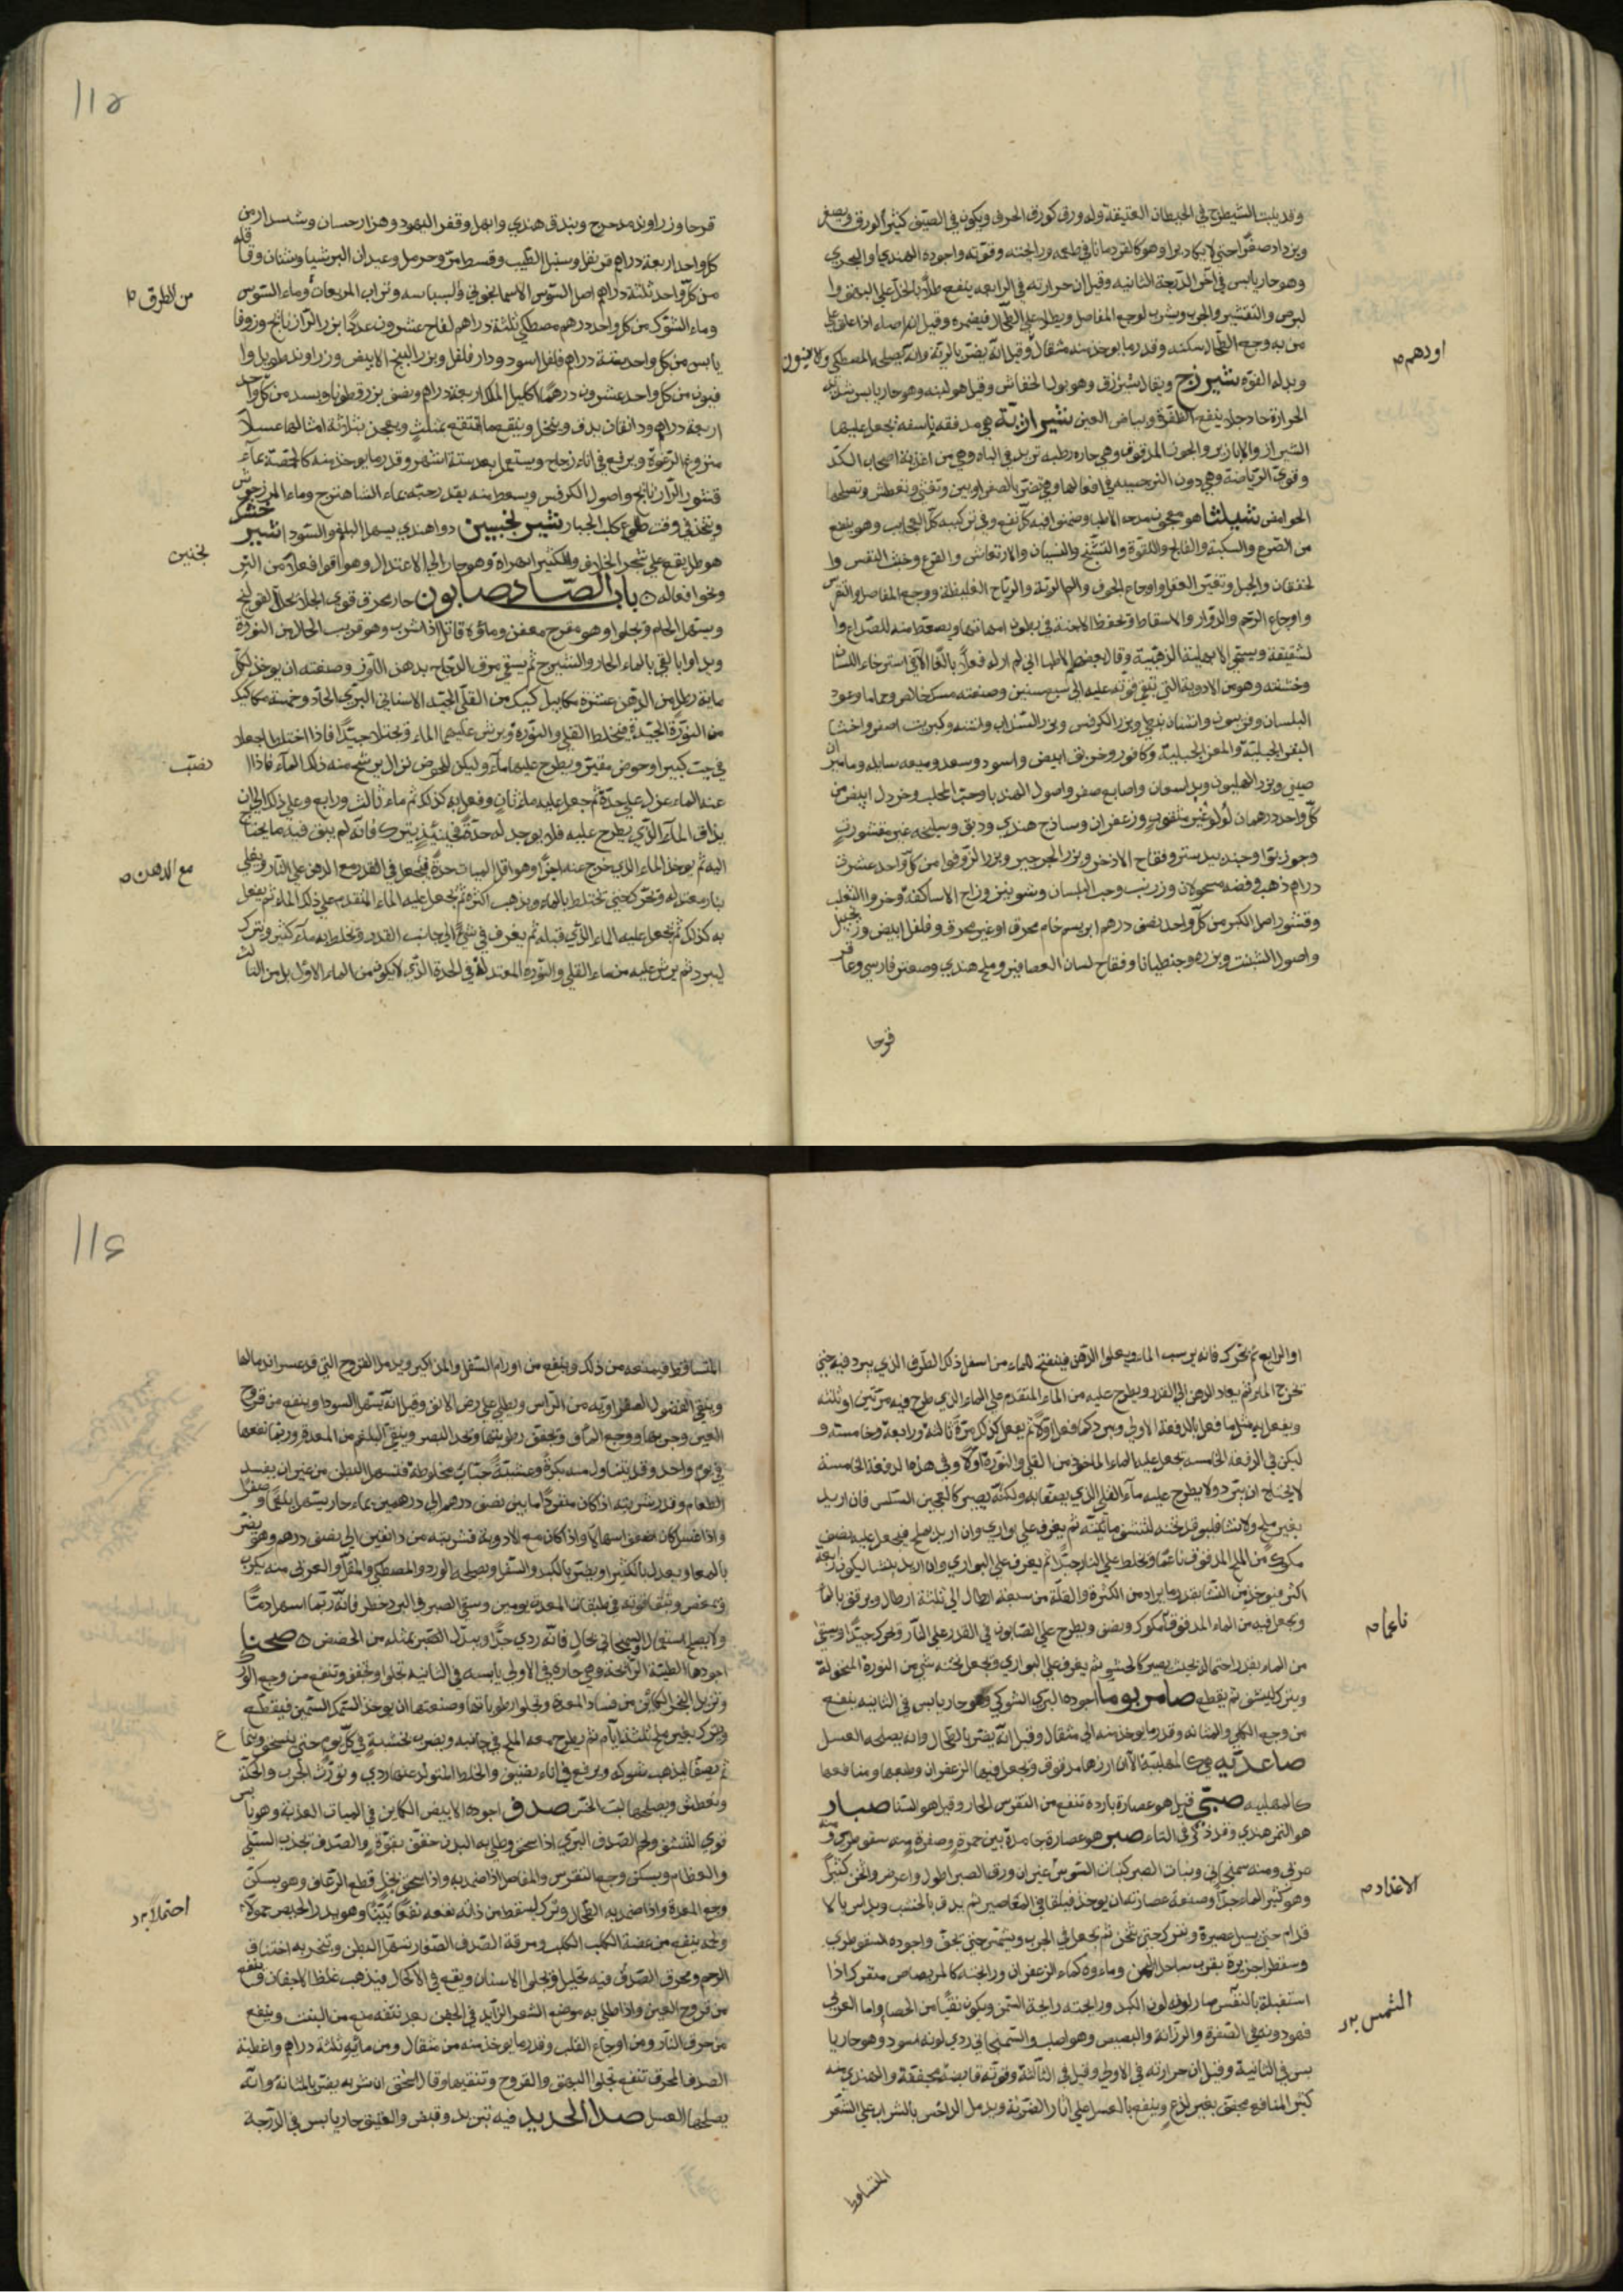 وقد ينبت الشيطرج في الحيطان العتيقة وله ورق كورق الحرف ويكون في الصيف كثير الورق ويصغر
ويزداد صغرا حتى لا يكاد يرا وهو كالقردمانا في طعمه ورائحته وقوته واجوده الهندي او البحري
وهو حار يابس في آخر الدرجة الثانيه وقيل ان حرارته في الرابعه ينفع طلاً بالخل على البهق وا
لبرص والتقشير والجرب وشرب لوجع المفاصل ويطلا على الطحال فيضمره وقيل ان اصله اذا علق على
من به وجع الطحال سكنه وقدر ما يوخذ منه مثقال وقيل انه يضر بالرئة وانه يصلحه المصطكي ولافيون
اودهم م
وبدله الفوه شير زج ويقال شيرزق وهو بول الخفاش وقيل هو لبنه وهو حار يابس شديد
الحرارة حاد جلا ينفع الظفرة وبياض العين شيراز بته هي مدققه يجعل عليها
الشيراز والابازير والجوز المدقوق وهي حاره رطبه تزيد في الباه وهي من اغذية اصحاب الكد
وقوي الرياضة وهي دون النرجسيه في افعالها وهي تضر بالصفراويين وتغثي وتعطش وتصلحها
الحوامض شيلثا هو معجون مدحه الاطبا وضمنوا فيه كل نفع وفي تركيبه كل العجايب وهو ينفع
من الصرع والسكتة والفالج واللقوة والتشنج والنسيان والارتعاش والفزع وخبث النفس وا
لخفقان والخبل وتغير العقل واوجاع الجوف والم الرئة والرياح الغليظة ووجع المفاصل والنقرس
واوجاع الرحم والدوار والاسقاط وتحفظ الاجنة في بطون امهاتها ويصعط منه للصداع وا
لشقيقة ويسمى الالهية الذهبية وقال بعض الاطبا اني لم ار له فعلاً بالغا الا في استرخاء اللسان
وخشنته وهو من الادوية التي تبقى قوته عليه الى سبع سنين وصنعته مسك خالص وحماما وعود
البلسان وفربيون واشنان نبطي وبزر الكرفس وبزر السذاب واشنه وكبريت اصفر واخثا
البقر الجبليه والمعز الجبلية وكافور وخربق ابيض واسود وسعد وميعه سايله ومامير ان
صيني وبزر الهليون وبلسان واصابع صفر واصول الهندبا وحب المحلب وخردل ابيض من
كل واحد درهمان لؤلؤ غير مثقوب وزعفران وساذج هندي ودبق وسليخه غير مقشورة
وجوز بوا وجند بيدستر وفقاح الاذخر وبزر الجرجير وبزر الزوفا من كل واحد عشرة
دراهم ذهب وفضه مسحولان وزرنب وحب البلسان وشونيز وزاج الاساكفة وخروالثعلب
وقشور اصل الكبر من كل واحد نصف درهم ابريسم خام محرق او غير محرق وفلفل ابيض وزنجبيل
واصول الشبت وبزره وجنطيانا وفقاح لسان العصافير وملح هندي وصعتر فارسي وعاقر
قرحا
115
قرحا وزراوند مدحرج وبندق هندي وابهل وقفر اليهود وهزارجسان وششدار من
كل واحد اربعة دراهم قرنفل وسنبل الطيب وقسط مر وحرمل وعيدان البرشياوشان وقاقله
من كل واحد ثلثة دراهم اصل السوسن الاسمانجوني ولسباسه وتراب المربعات وماء السوس
من الطرق م
وماء الشوك من كل واحد درهم مصطكي ثلثة دراهم لفاح عشرون عددًا بزر الرازيانج وزوفا
يابس من كل واحد سبعة دراهم فلفل اسود ودار فلفل وبزر البنج الابيض وزراوند طويل وا
فيون من كل واحد عشرون درهما اكليل الملك اربعة دراهم ونصف بزر قطونا وبسد من كل واحد
اربعة دراهم ودانقان يدق وينخل وينقع ما تنقع بمثلث ويعجن بثلاثة امثالها عسلاً
منزوع الرغوة ويرفع في اناء زجاج ويستعمل بعد ستة اشهر وقدر ما يوخذ منه كالحمصة بماء
قشور الرازيانج واصول الكرفس ويسعط منه بقدر حبه بماء الشاهترج وماء المرزنجوش
ويتخذ في وقت طلوع كلب الجبار شير نجشير دوا هندي يسهل البلغم والسودا شير خشك
نجنين
هو طل يقع على شجر الخلاف والكثيرا بهراة وهو حار الى الاعتدال وهو اقوا فعلا من الترنـ
ونحوا فعاله ه باب الصّاد صابون حار محرق قوي الجلا يحلل القولنج
ويسهل الخام ويجلوا وهو مقرح معفن وماؤه قاتل اذا شرب وهو قريب الحال من النورة
ويداوا بالقي بالماء الحار والشيرج ثم يسقى مرق الدجاج بدهن اللوز وصنعته ان يوخذ لكل
ماية رطل من الدهن عشرة مكاييل كبيك من القلي الجيد الاسناني البري الحاد وخمسة مكاكيك
من النورة الجيدة فيخلط القلي والنورة ويرش عليهما الماء ويختلط جيداً فاذا اختلط اجعله
في جب كبير او حوض مقير ويطرح عليه ماء وليكن للحوض نزال يرشح منه ذلك الماء فاذا ا
نصبّ
عنه الماء عزل على حدة ثم جعل عليه ماء ثانٍ وفعل به كذلك ثم ماء ثالث ورابع وعلى ذلك الى ان
يذاق الماء الذي يطرح عليه فلا يوجد له حدة فحينئذٍ يترك فانه لم يبق فيه ما يحتاج
اليه ثم يوخذ الماء الذي خرج عنه اخراً وهو اقل المياه حدةً فيجعل في القدر مع الدهن على النار ويغلي
مع الدهن م
بنار معتدله ويحرك حتى يختلط بالماء ويذهب اكثره ثم يجعل عليه الماء المتقدم على ذلك الماء ثم يفعل
به كذلك ثم يجعل عليه الماء الذي قبله ثم يغرف في شيء الى جانب القدر ويخلط به ماء كثير ويترك
ليبرد ثم يرش عليه من ماء القلي والنورة المعتدلة في الحدة الذي لا يكون من الماء الاول بل من الثالث
او الرابع ثم يحرك فانه يرسب الماء ويعلوا الدهن فيفتح للماء من اسفل ذلك الظرف الذي يبرد فيه حتى
تخرج الماء ثم يعاد الدهن الى القدر ويطرح عليه من الماء المتقدم على الماء الذي طرح فيه مرتين او ثلثه
ويفعل به مثل ما فعل بالدفعة الاولى ويبرد كما فعل اولاً ثم يفعل كذلك مرة ثالثة ورابعة وخامسة و
ليكن في الدفعة الخامسه يجعل عليه الماء الماخوذ من القلي والنورة اولاً وفي هذه الدفعة الخامسة
لا يحتاج ان يبرد ولا يطرح عليه ماء القلي الذي يصفا به ولكنه يصير كالعجين السلس فان اريد
بغير ملح ولا نشا فليوقد تحته لتنشف مائيته ثم يغرف على بواري وان اريد بملح فيجعل عليه نصف
مكوك من الملح المدقوق ناعماً ويخلط على النار جيداً ثم يغرف على البواري وان اريد بنشا ليكون رابعة
اكثر فيوخذ من النشا بقدر ما يراد من الكثرة والقلة من سبعة ارطال الى ثلثة ارطال ويدق بالماء
ناعما م
ويجعل فيه من الماء المدقوق مكوك ونصف ويطرح على الصابون في القدر على النار ويحرك جيداً ويسقى
من الماء بقدر احتماله بحيث يصير كالحشو ثم يغرف على البواري ويجعل تحته شي من النورة المنخولة
ويترك لينشف ثم يقطع صامر يوما اجوده البري الشوكي وهو حار يابس في الثانيه ينفع
من وجع الكلى والمثانه وقدر ما يوخذ منه الى مثقال وقيل انه يضر بالطحال وانه يصلحه العسل
صاعديه هي كالمهلبية الا ان ارزها مدقوق ويجعل فيها الزعفران وطبعها ومنافعها
كالمهلبيه صبّى قيل هو عصارة بارده تنفع من النقرس الحار وقيل هو السنا صبار
هو التمر هندي وقد ذكر في التاء صبر هو عصارة جامدة بين حمرة وصفرة منه سقوطري ومنه
عربي ومنه سمنجاني ونبات الصبر كنبات السوسن غير ان ورق الصبر اطول واعرض واثخن كثيراً
الاغذاد م
وهو كثير الماء جداً وصنعة عصارته ان يوخذ فيلقا في المعاصير ثم يدق بالخشب ويداس بالا
قدام حتى يسيل عصيره ويترك حتى يثخن ثم يجعل في الجرب ويشمس حتى يجف واجوده السقوطري
وسقطرا جزيرة بقرب ساحل اليمن وماءوه كماء الزعفران ورائحته كالمر بصاص متفرك اذا
استقبلته بالنفس صار لونه لون الكبد ورائحته رائحة السمن ويكون نقياً من الحصا واما العربي
الشمس بدر
فهو دونه في الصفرة والرزانة والبصيص وهو اصلب والسمنجاني ردي لونه اسود وهو حار يا
بس في الثانية وقيل ان حرارته في الاولى وقيل في الثالثة وقوته قابضة مجففة والهندي منه
كثير المنافع مجفف بغير لذع وينفع بالعسل على اثار الضربة ويدمل الداحس بالشراب على الشعر
المتساقط
116
المتساقط فيمنعه من ذلك وينفع من اورام السفل والمذاكير ويدمل القروح التي قد عسر اندمالها
وينقي الفضول الصفراويه من الراس ويطلى على رض الانف وقيل انه يسهل السودا وينفع من قروح
العين وجربها ووجع الماق ويجفف رطوبتها ويحد البصر وينقي البلغم من المعدة وربما نفعها
في يوم واحد وقد يتناول منه بكرةً وعشيةً حبات مخلوطة فتسهل البطن من غير ان يفسد
الطعام وقدر شربته اذا كان منفرداً ما بين نصف درهم الى درهمين بماء حار يسهل بلغماً وصفرا
واذا غسل كان اضعف اسهالا واذا كان مع الادوية فشربته من دانقين الى نصف درهم وهو يضر
بالمعا ويعدل بالكثيرا ويضر بالكبد والسفل ويصلحه الورد والمصطكي والمقل والعربي منه يكرب
ويمغص وتبقا قوته في طبقات المعدة يومين وسقي الصبر في البرد خطر فانه ربما اسهل دماً
ولا يصلح استعمال السمنجاني بحالٍ فانه ردي جداً ويبدل الصبر بمثله من الحضض ه صحنا
اجودها الطيبة الرائحة وهي حارة في الاولى يابسه في الثانيه تجلوا وتجفف وتنفع من وجع الورك
وتزيل البخر الكاين من فساد المعدة وتجلوا رطوباتها وصنعتها ان يوخذ السمك السمين فيقطع
ويترك بغير ملح ثلثة ايام ثم يطرح معه الملح في جانبه ويضرب بخشبةٍ في كل يوم حتى ينسحق وينما ع
ثم يصفا ليذهب شوكه ويرفع في اناء نضيف والخلط المتولد عنها ردي وتورث الجرب والحكة
وتعطش ويصلحها لب الخس صدف اجوده الابيض الكاين في المياه العذبة وهو يابس
قوي التنشف ولحم الصدف البري اذا سحق وطلي به البدن جفف بقوة والصدف يجذب السلى
والعظام ويسكن وجع النقرس والمفاصل اذا ضمد به واذا سحق بخل قطع الرعاف وهو يسكن
احتملا بدر
وجع المعدة واذا ضمد به الطحال وترك ليسقط من ذاته نفعه نفعاً بيّناً وهو يدر الحيض حمولا
ولحمه ينفع من عضة الكلب الكلب ومرقة الصدف الصغار تسهل البطن ويتبخر به اختناق
الرحم ومحرق الصدف فيه تحليل ويجلوا الاسنان ويقع في الاكحال فيذهب غلظ الاجفان وينفع
من قروح العين واذا طلي به موضع الشعر الزايد في الجفن بعد نتفه منع من النبت وينفع
من حرق النار ومن اوجاع القلب وقدر ما يوخذ منه من مثقال ومن مائه ثلثة دراهم واغطية
الصدف المحرق تنفع تجلوا البهق والقروح وتنقيها وقال اسحق ان شربه يضر بالمثانة وانه
يصلحها العسل صدا الحديد فيه تبريد وقبض والعتيق حار يابس في الدرجة